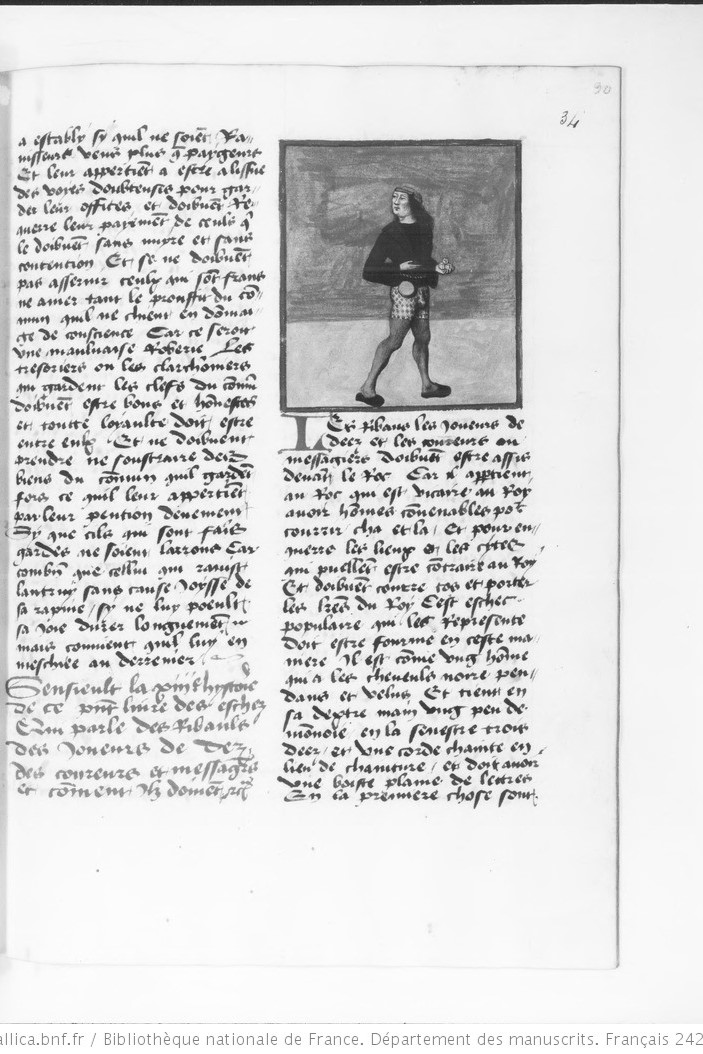 30
34
a estably sy quil ne soiēt Ra-
uisseurs veus plus q̄ paygeurs
Et leur appertiēt a estre a lissue
des voyes doubteuses pour gar-
der leur offices et doibuēt Re-
querre leur payemēt de ceulx q̄
le doibuēt sans iniure et sans
contention Et se ne doibuēt
pas asseruir ceulx qui sōt frans
ne amer tant le prouffit du cō-
mun quil ne chieent en dōmai-
ge de conscience Car ce seroit
vne mauluaise Roberie Les
tresoriers ou les
qui gardent les clefs du cōmū
doibuēt estre bons et hōnestes
et toutte loyaulte doit estre
entre eulx Et ne doibuent
prendre ne soustraire des
biens du cōmun quil gardēt
fors ce quil leur appertiēt
par leur pention deuement
Sy que cils qui sont fais
gardes ne soient larrons Car
combiē que cellui qui rauist
lautruy sans cause Joysse de
sa rapine sy ne luy poeult
sa ioie durer longuemēt
mais conuient quil luy en
meschiee au derrenier
Sensieult la xiiiᵉ hystoire
de ce pn̄t liure des eschez
Qui parle des Ribauls
des Joueurs de Dez
des coureurs et messagr̄s
et cōment Ilz doiuēt
LEs Ribaus les Joueurs de
deez et les coureurs ou
messagiers doibuēt estre assis
deuāt le Roc Car il apptient
au Roc qui est vicaire au Roy
auoir hōmes conuenables por
courrir cha et la Et pour en-
querre les lieux et les cites
qui puellēt estre cōtraire au Roy
Et doibuēt courre tos et porter
les lr̄es du Roy Cest eschec
populaire qui les Represente
doit estre fourme en ceste ma-
niere Il est cōme vng hōme
qui a les cheueuls noirs pen-
dans et velus Et tient en
sa dextre main vng peu de
mōnoie en la senestre trois
deez et vne corde chainte en
lieu de chainture et doit auoir
vne boiste plaine de lettres
En la premiere chose sont
allica.bnf.fr / Bibliothèque nationale de France. Département des manuscrits. Français 242